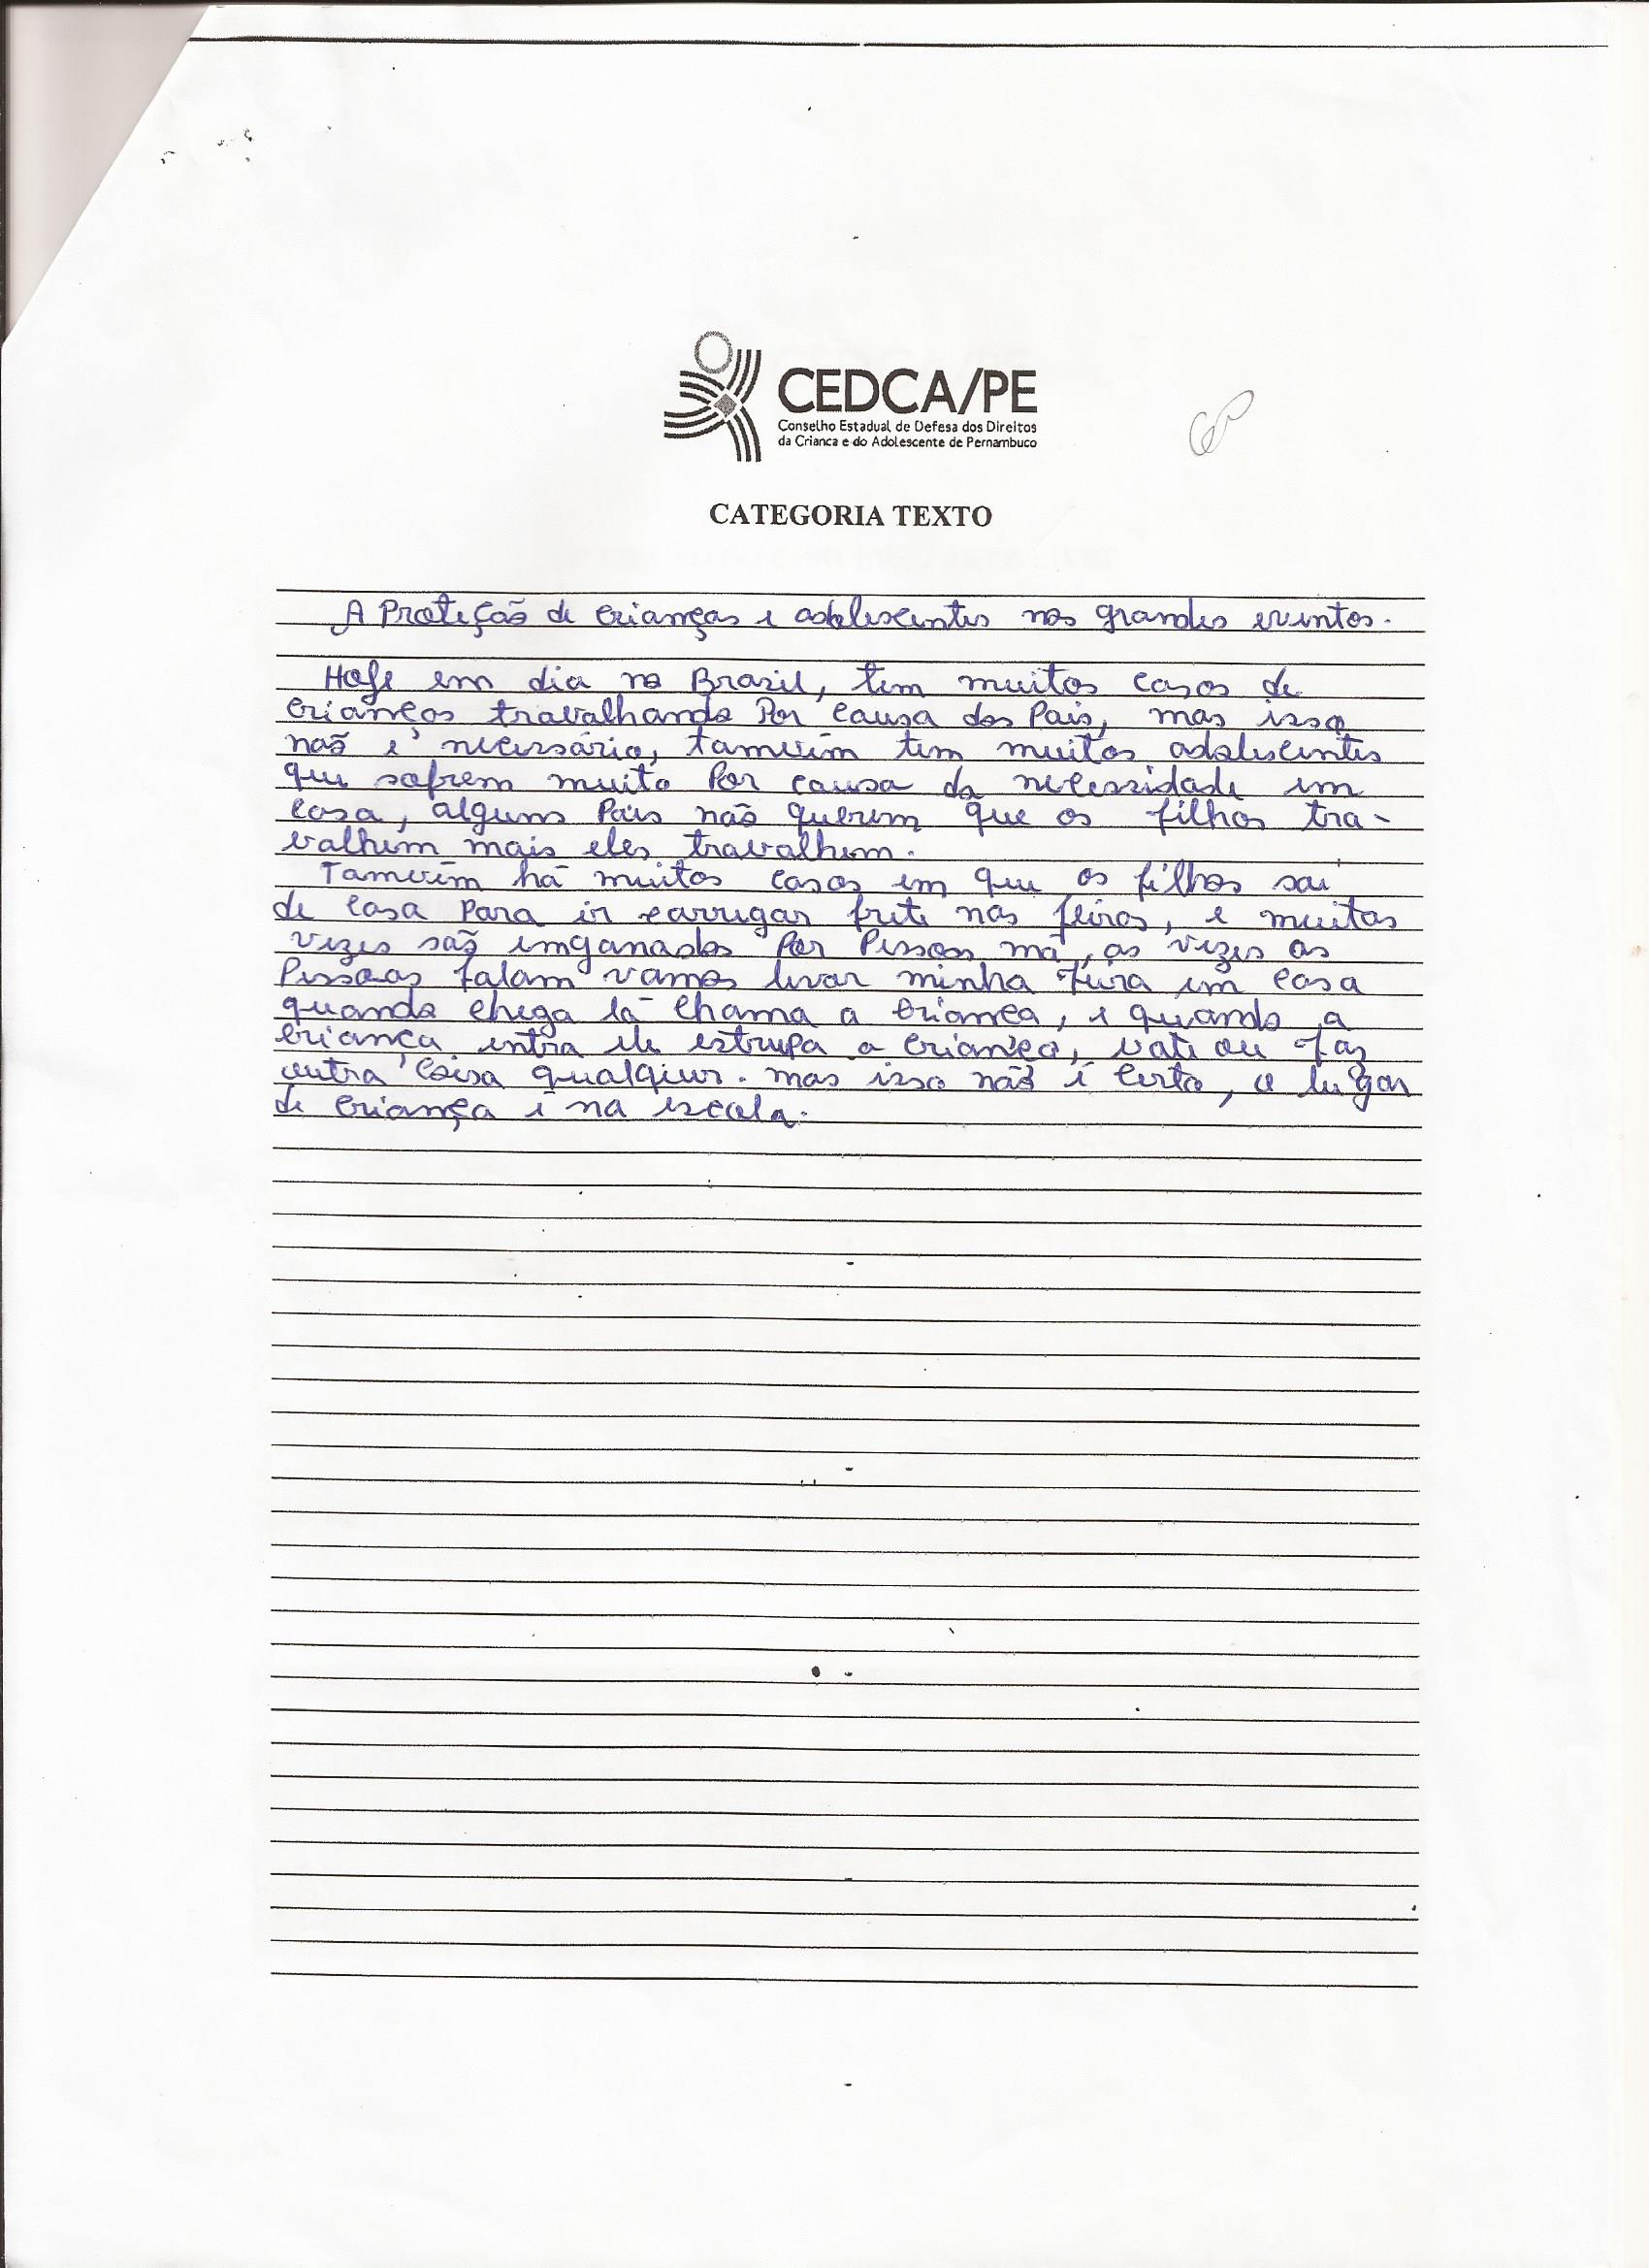 CEDCA/PE
Conselho Estadual de Defesa dos Direitos
da Crianca e do Adolescente de Pernambuco
CATEGORIA TEXTO
A Proteção de crianças e adolescentes nos grandes eventos.
Hoje em dia no Brazil, tem muitos casos de
crianços travalhando Por causa dos Pais, mas isso
naõ e' necessário, tamvém tem muitos adolescentes
que sofrem muito Por causa da necessidade em
casa, alguns Pais não querem que os filhos tra-
valhem mais eles travalhem.
Tamvém há muitos casos em que os filhos sai
de casa Para ir carregar frete nas feiras, e muitas
vezes saõ emganados Por Pessoas má, as vezes as
Pessoas falam vamos levar minha feira em casa
quando chega lá chama a criança, e quando a
criança entra ele estrupa a criança, vate ou faz
outra coisa qualqieur. mas isso não é certo, o lugar
de criança é na escola.